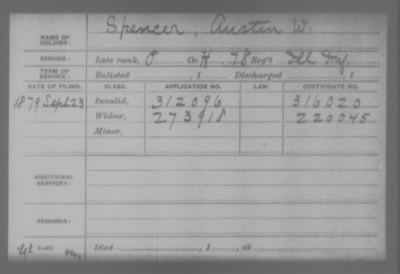 NAME OF SOLDIER: Spencer, Austin W.
SERVICE: Late rank, P Co. H, 78 Reg't Ill Inf.
TERM OF SERVICE: Enlisted , 1 Discharged , 1
DATE OF FILING. CLASS. APPLICATION NO. LAW. CERTIFICATE NO.
1879 Sept 23 Invalid, 312096 316020
Widow, 273918 220045
Minor,
ADDITIONAL SERVICE:
REMARKS:
Died , 1 , at